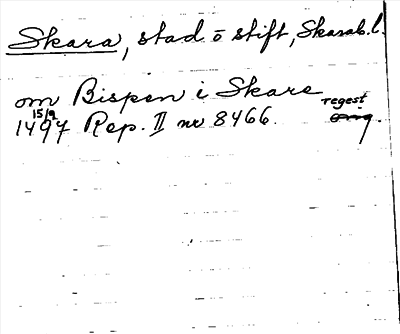 Skara, stad o stift, Skarab. l.
om Bispen i Skare
15/9 regest
1497 Rep. II nr 8466. orig.